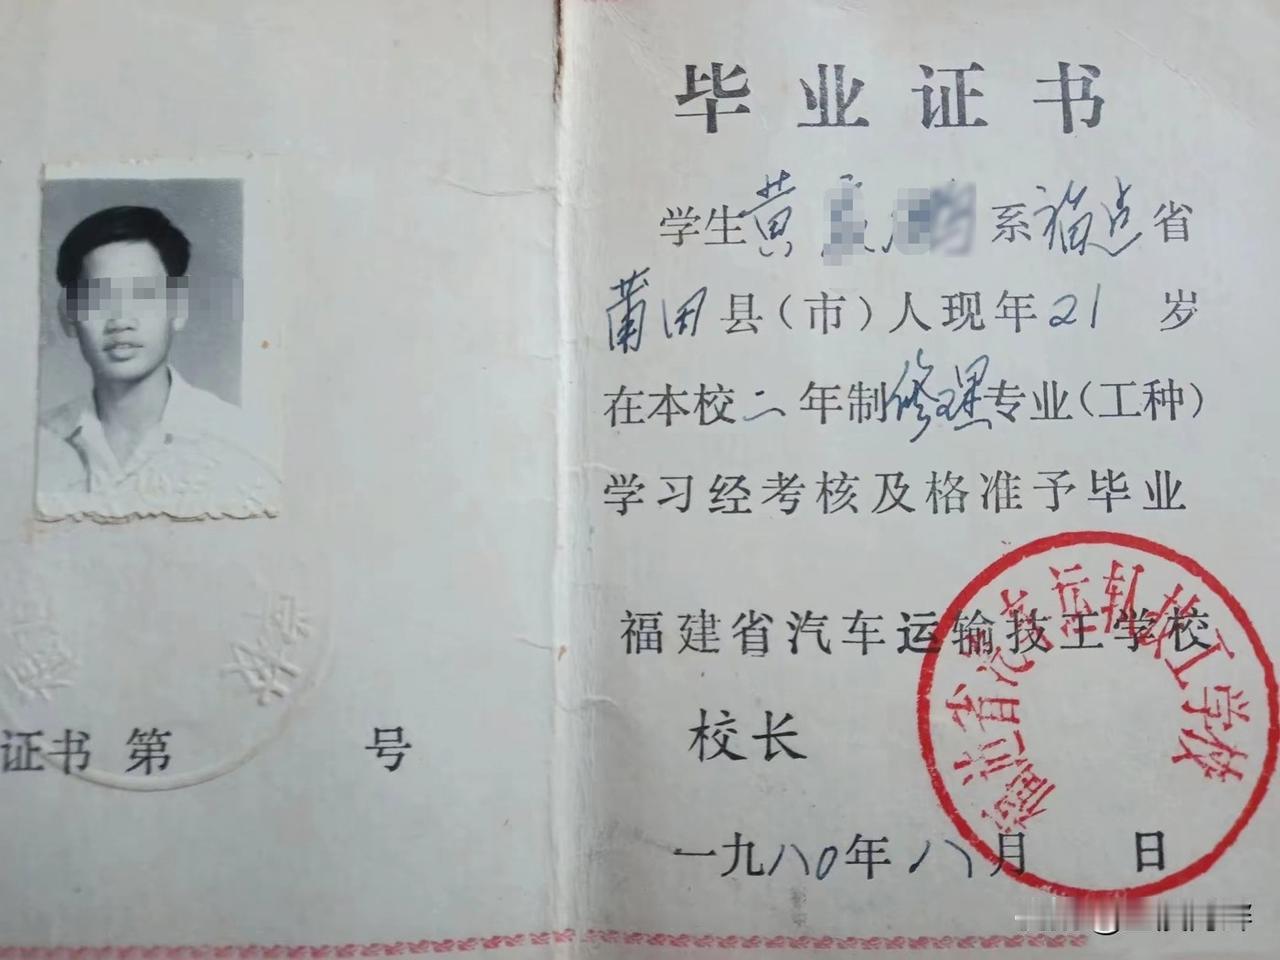 证书第 号
毕业证书
学生黄 系福建省
莆田县（市）人现年21岁
在本校二年制修理专业（工种）
学习经考核及格准予毕业
福建省汽车运输技工学校
校长
一九八〇年八月 日
福建省汽车运输技工学校